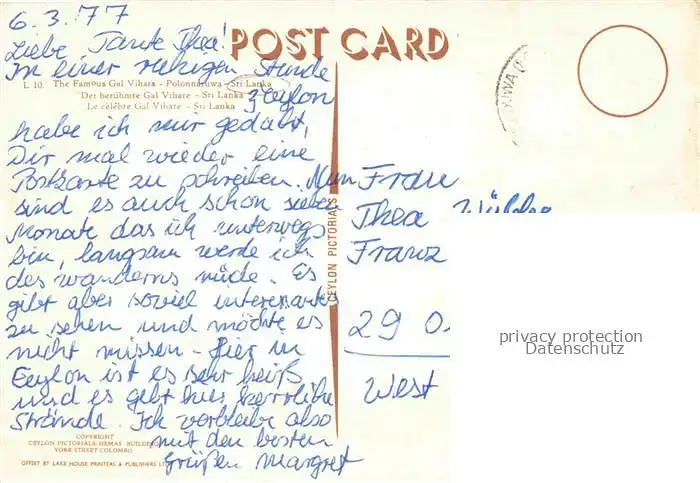 6.3.77
POST CARD
Liebe Tante Thea!
In einer ruhigen Stunde
L 10. The Famous Gal Vihara - Polonnaruwa - Sri Lanka
Der berühmte Gal Vihare - Sri Lanka
Le célèbre Gal Vihare - Sri Lanka
Zeylon
habe ich mir gedaht,
Dir mal wieder eine
Postkarte zu schreiben. Nun
sind es auch schon sieben
Monate das ich unterwegs
bin, langsam werde ich
des wanderns müde. Es
gibt aber soviel interesantes
zu sehen und möchte es
nicht missen - Hier in
Ceylon ist es sehr heiß
und es gibt hier herrliche
Strände. Ich verbleibe also
mit den besten
Grüßen Margret
COPYRIGHT
CEYLON PICTORIALS HEMAS BUILDING
YORK STREET COLOMBO
OFFSET BY LAKE HOUSE PRINTERS & PUBLISHERS LT
CEYLON PICTORIALS
Frau
Thea
Franz
29 O
West
privacy protection
Datenschutz